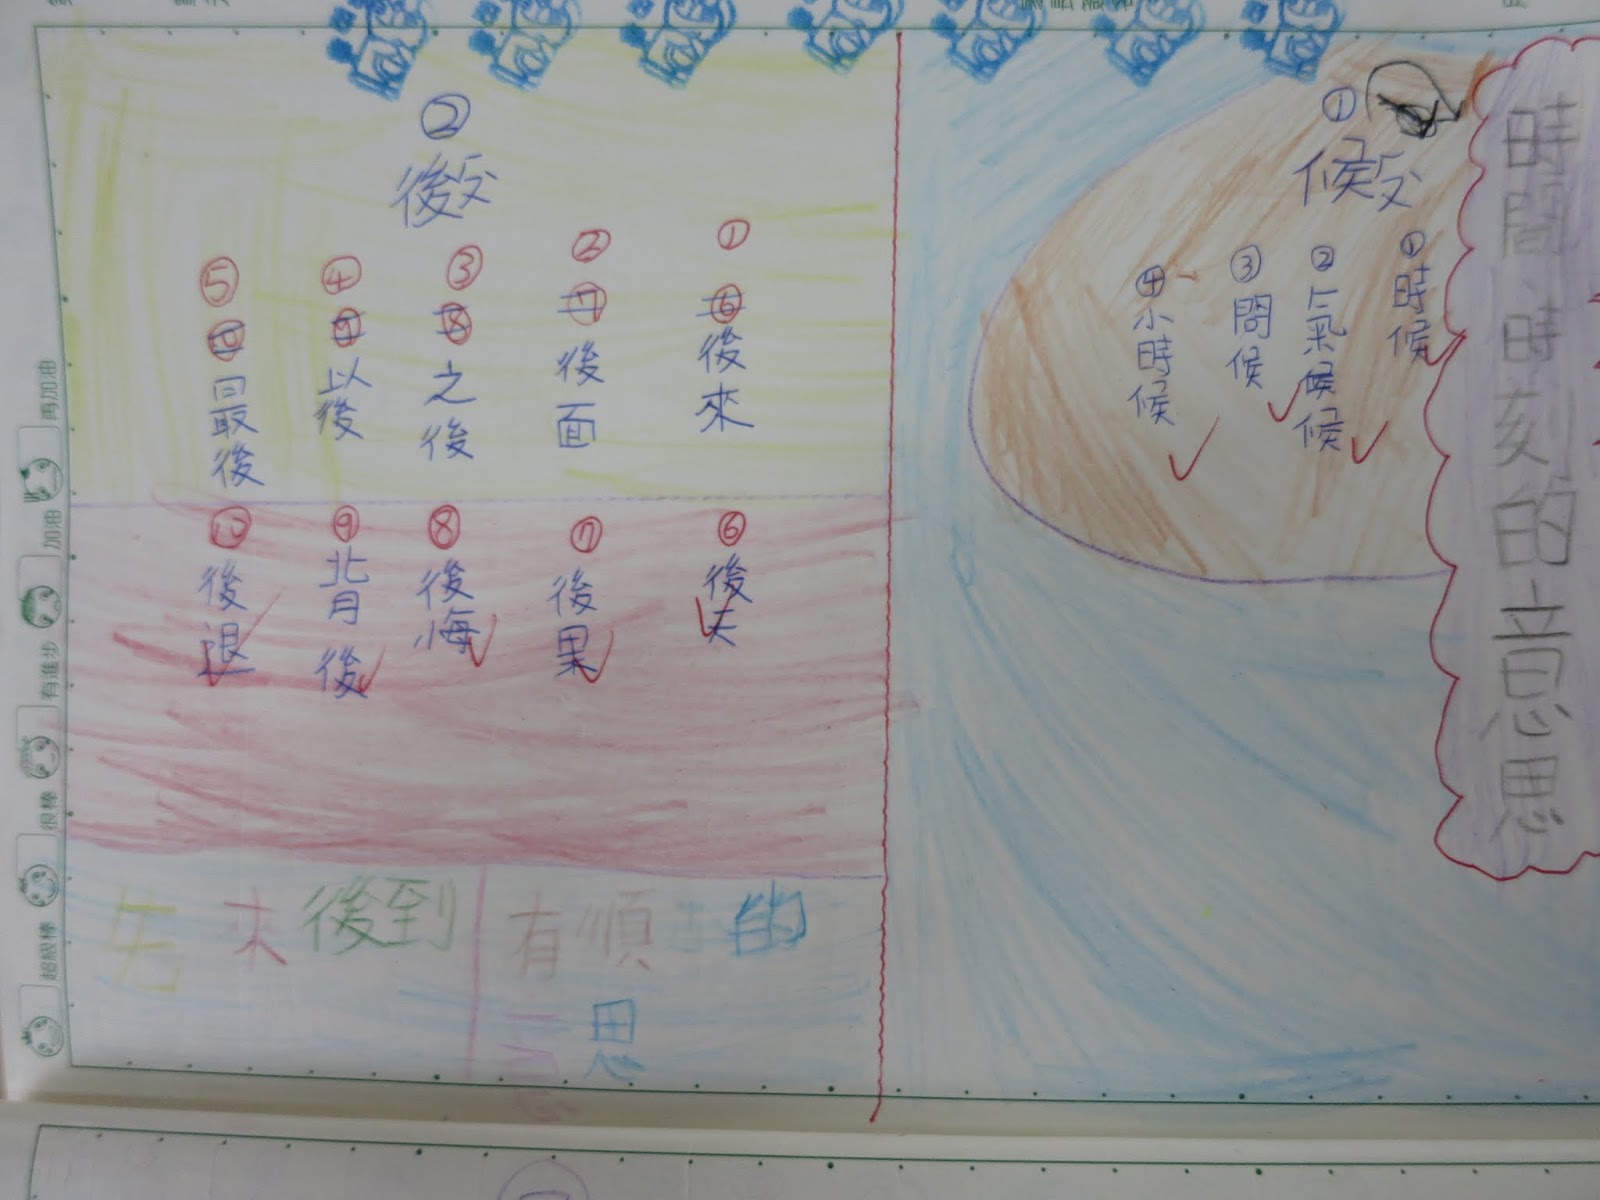 時間、時刻的意思
① 候
① 時候
② 氣候
③ 問候
④ 小時候
② 後
① 後來
② 後面
③ 之後
④ 以後
⑤ 最後
⑥ 後天
⑦ 後果
⑧ 後悔
⑨ 背後
⑩ 後退
的
順
有
思
先來後到
再加油
加油
有進步
很棒
超級棒